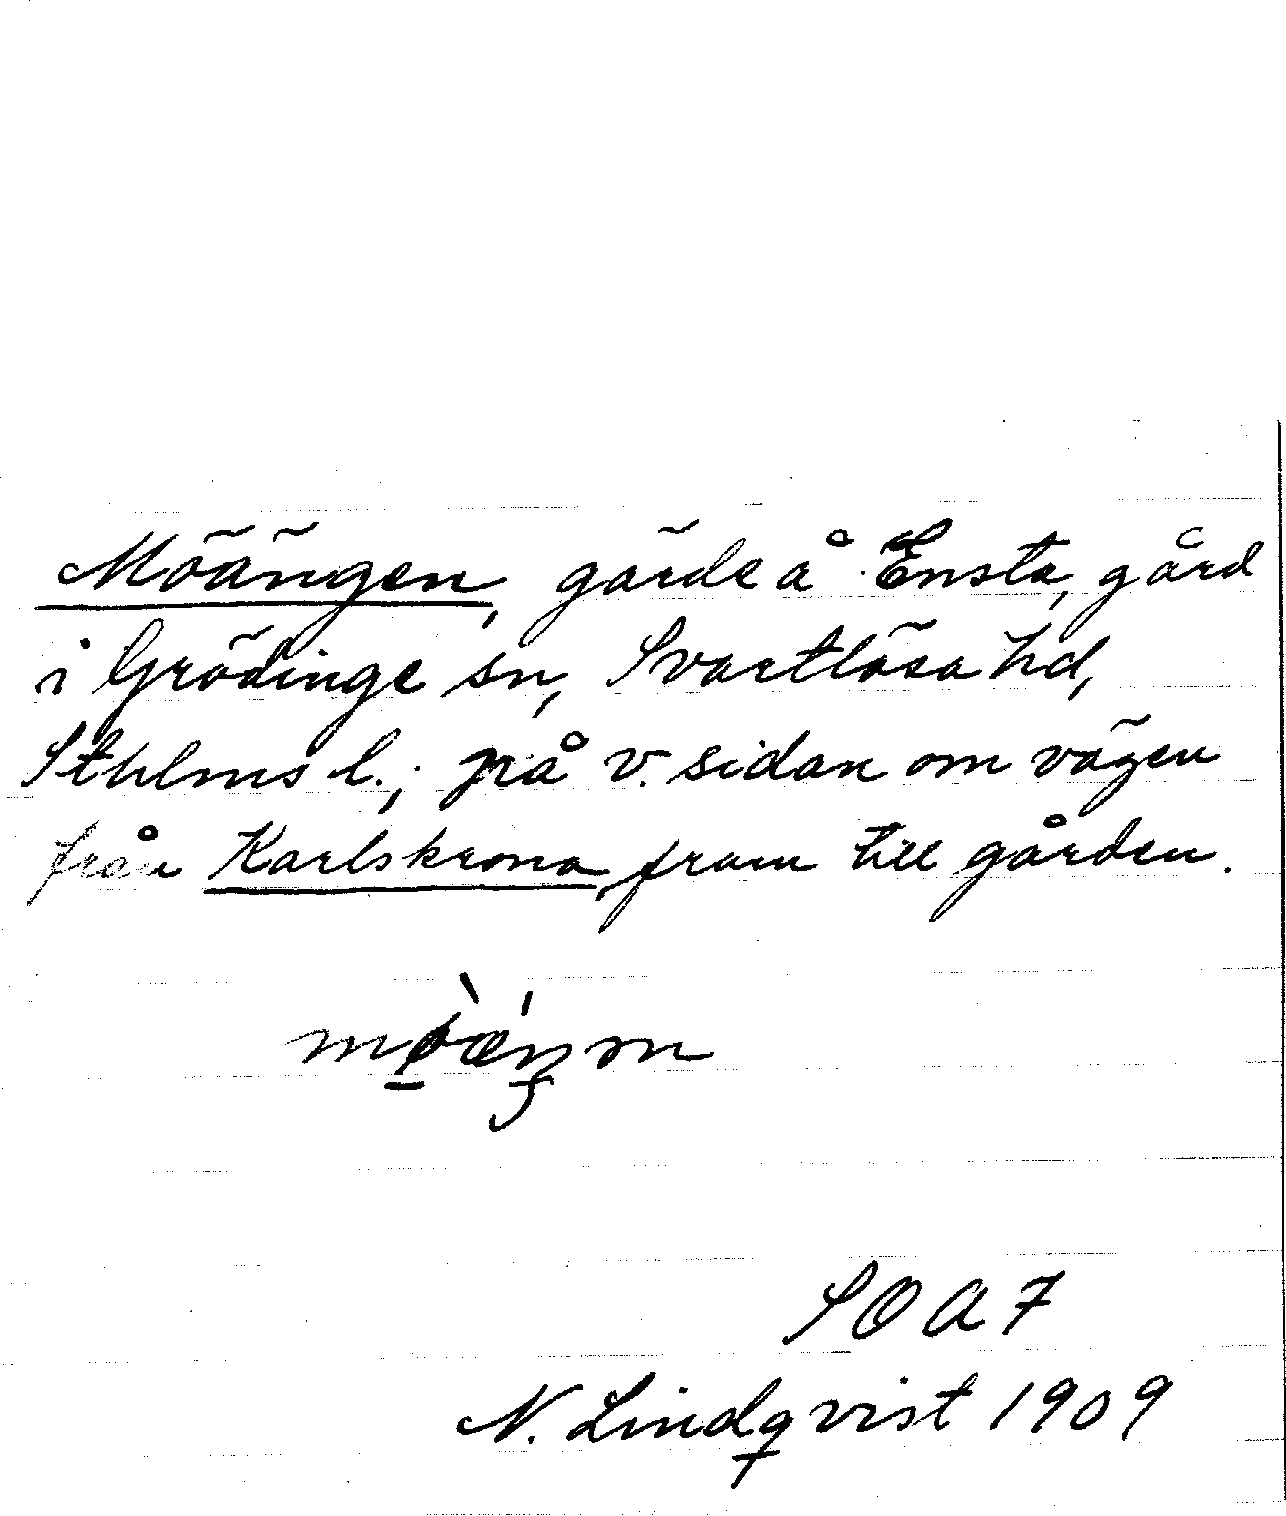 Möängen, gärde å Ensta, gård
i Grödinge sn, Svartlösa hd,
Sthlms l.; på v. sidan om vägen
från Karlskrona fram till gården.
SOA 7
N. Lindqvist 1909